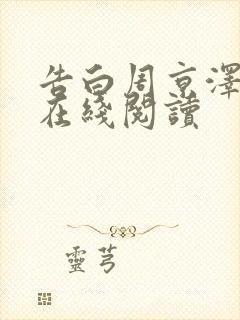 告白周京澤
在綫閱讀
靈芎